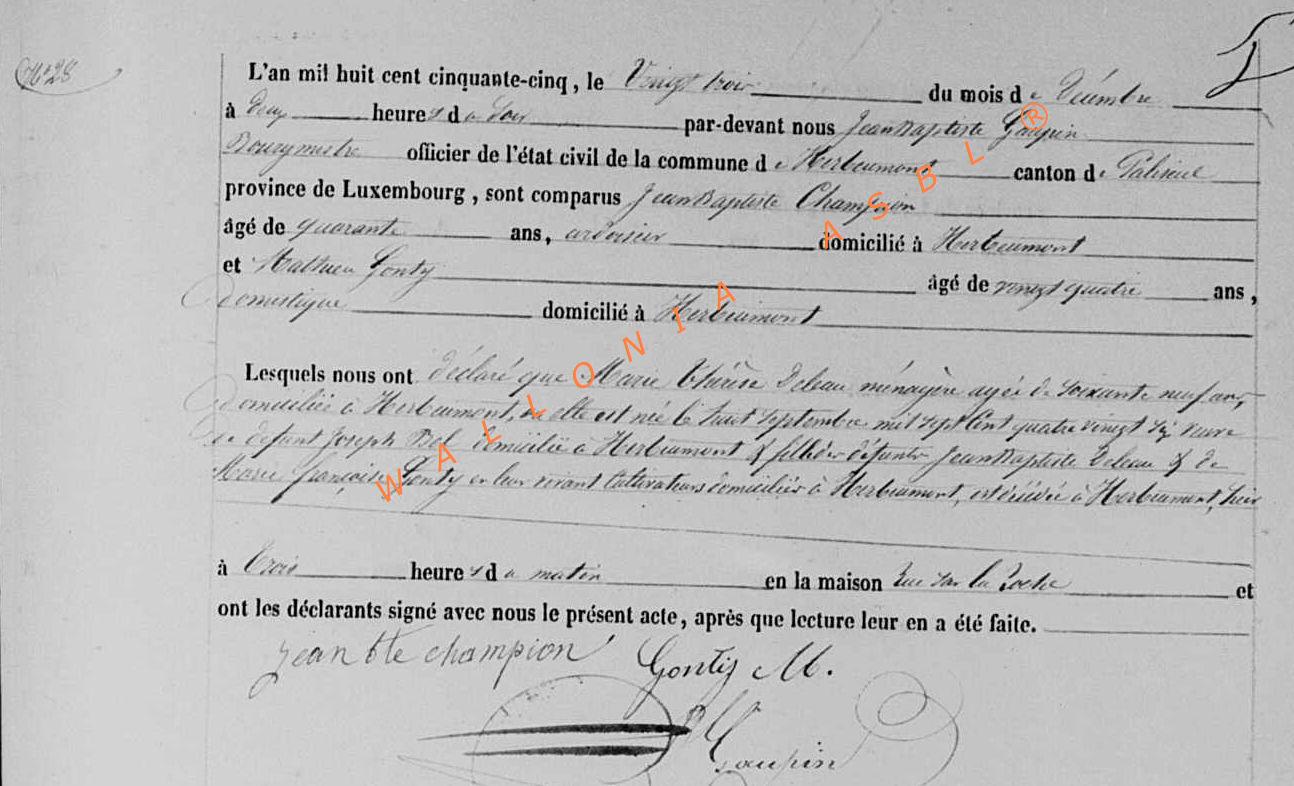 N° 28
L'an mil huit cent cinquante-cinq, le Vingt trois du mois de Décembre
à deux heures du Soir par-devant nous Jean Baptiste Goupin
Bourgmestre officier de l'état civil de la commune de Herbeumont canton de Paliseul
province de Luxembourg, sont comparus Jean Baptiste Champion
âgé de quarante ans, ardoisier domicilié à Herbeumont
et Mathieu Gonty âgé de vingt quatre ans,
domestique domicilié à Herbeumont
Lesquels nous ont déclaré que Marie Thérèse Deleau ménagère agée de soixante neuf ans,
domiciliée à Herbeumont, où elle est née le huit Septembre mil sept cent quatre vingt six veuve
de défunt Joseph Bel domicilié à Herbeumont & fille des défunts Jean Baptiste Deleau & de
Marie françoise Gonty en leur vivant Cultivateurs domiciliés à Herbeumont, est décédée à Herbeumont, hier
à trois heures du matin en la maison Rue sur la Roche et
ont les déclarants signé avec nous le présent acte, après que lecture leur en a été faite.
jean bte champion Gontiy M.
Goupin
WALLONIA ASBL ®